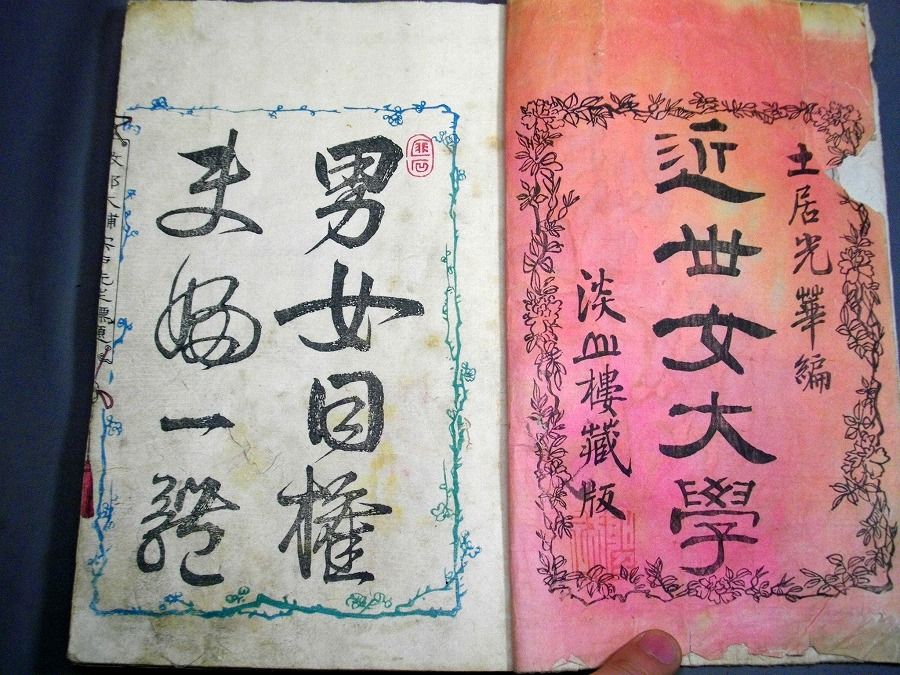 土居光華編
近世女大學
淡血樓藏版
男女同權
夫婦一體
大輔 先生標題